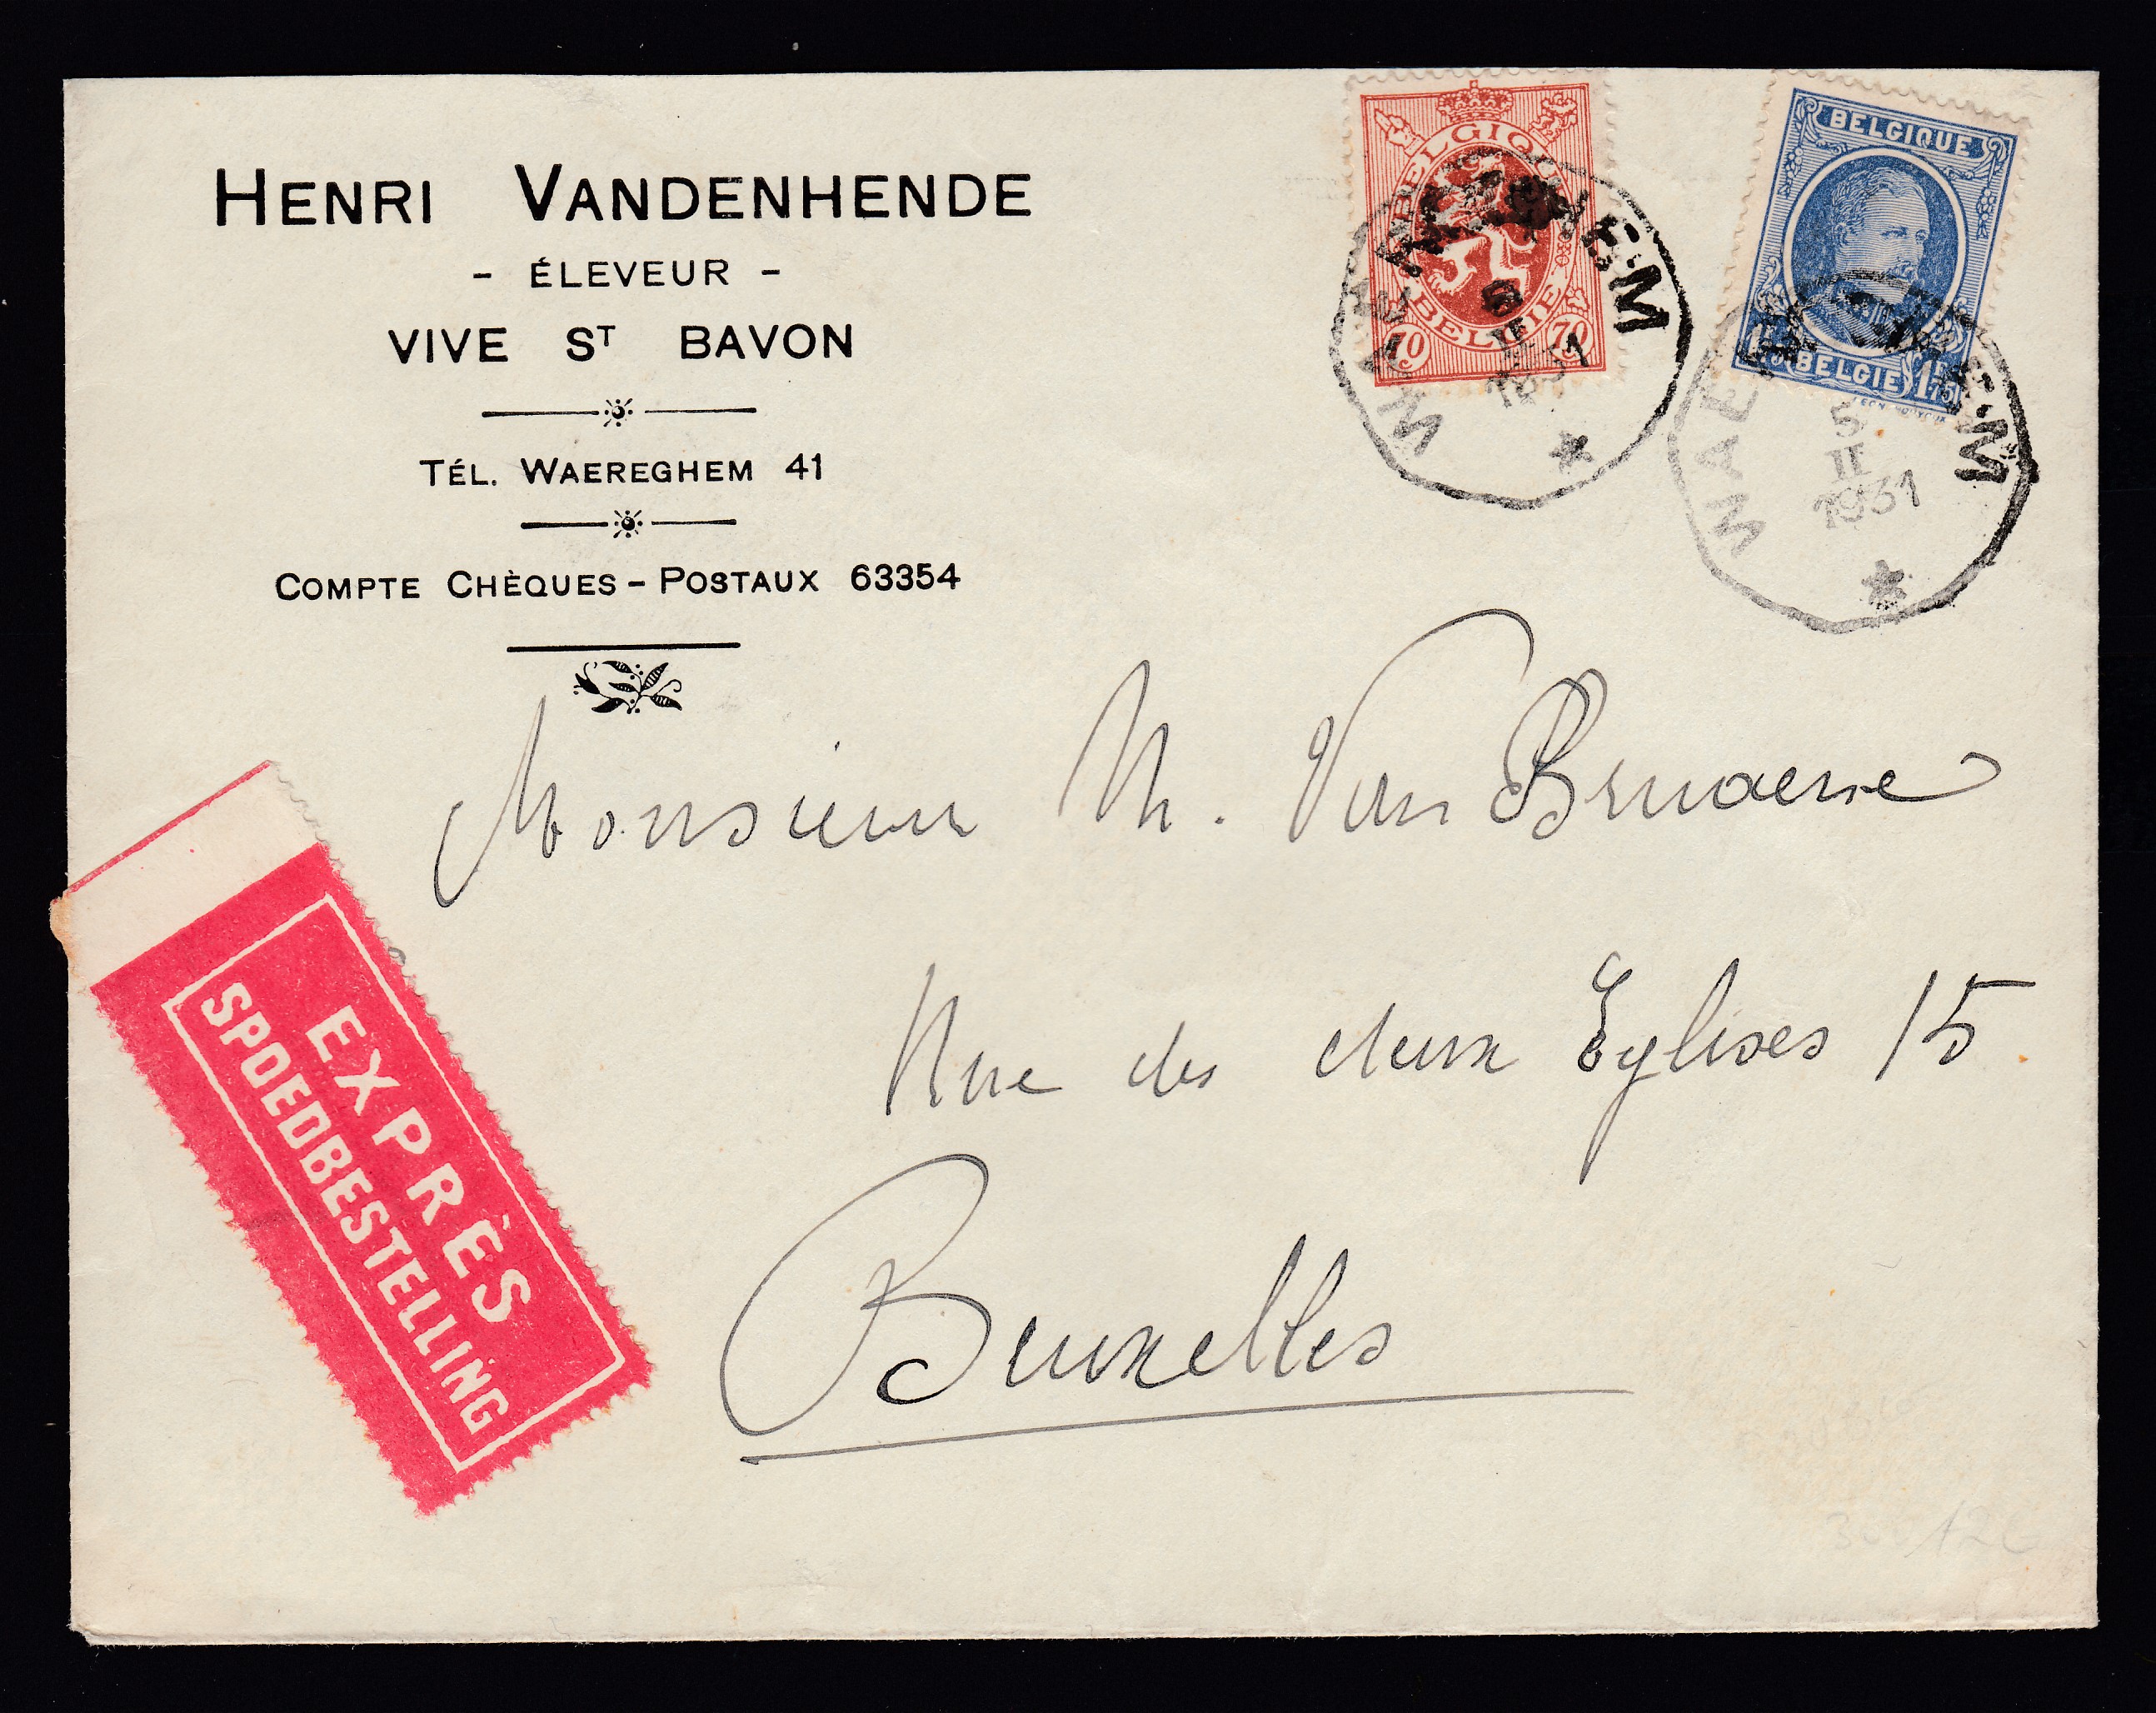 HENRI VANDENHENDE
- ÉLEVEUR -
VIVE ST BAVON
TÉL. WAEREGHEM 41
COMPTE CHÈQUES - POSTAUX 63354
BELGIQUE
BELGIE
70 70
BELGIQUE
1.75 BELGIE 1F75
WAEREGHEM
5
II
1931
WAEREGHEM
5
II
1931
Monsieur M. Van Bruaene
Rue des deux Eglises 15
Bruxelles
EXPRÈS
SPOEDBESTELLING